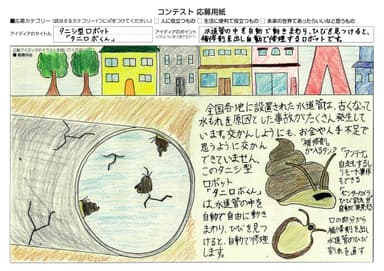 コンテスト 応募用紙
■応募カテゴリー(該当するカテゴリー1つに✓をつけてください) □人に役立つもの □生活に便利で役立つもの □未来の世界であったらいいなと思うもの
アイデアのタイトル
タニシ型ロボット
「タニロボくん」
アイデアのポイント
水道管の中を自動で動きまわり、ひびを見つけると、
補修剤を出し自動で修理するロボットです。
全国各地に設置された水道管は、古くなって
水もれを原因とした事故がたくさん発生して
います。交かんしようにも、お金や人手不足で
思うように交かん
できていません。
このタニシ型
ロボット
「タニロボくん」
は、水道管の中を
自動で自由に動き
まわり、ひびを見つ
けると、自動で修理
します。
「補修剤」
が入るタンク
「アンテナ」
自走もするし
リモート操作
もできる
「センサーカメラ」
ひび割れを
自動で発見
口の部分から
補修剤を出し
水道管のひび
割れを直す